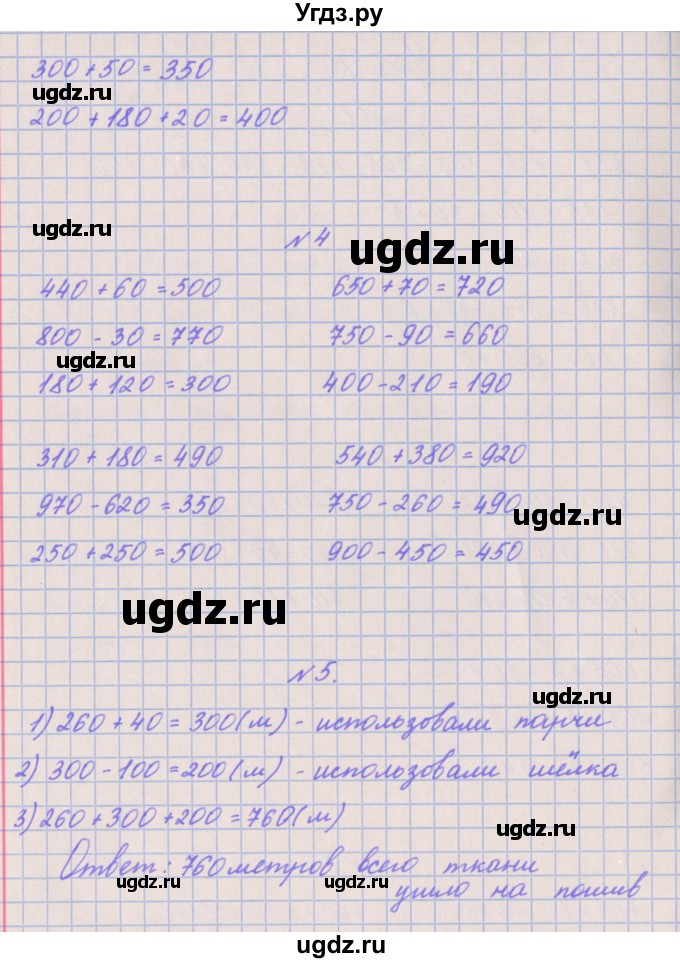 Угдз.ру
300 + 50 = 350
ugdz.ru
200 + 180 + 20 = 400
ugdz.ru
№ 4
ugdz.ru
440 + 60 = 500 650 + 70 = 720
800 - 30 = 770 750 - 90 = 660
ugdz.ru
180 + 120 = 300 400 - 210 = 190
310 + 180 = 490 540 + 380 = 920
970 - 620 = 350 750 - 260 = 490
ugdz.ru
250 + 250 = 500 900 - 450 = 450
ugdz.ru
№ 5.
1) 260 + 40 = 300 (м) - использовали парчи
2) 300 - 100 = 200 (м) - использовали шёлка
3) 260 + 300 + 200 = 760 (м)
ugdz.ru
Ответ: 760 метров всего ткани
ugdz.ru ugdz.ru
ушло на пошив
ugdz.ru